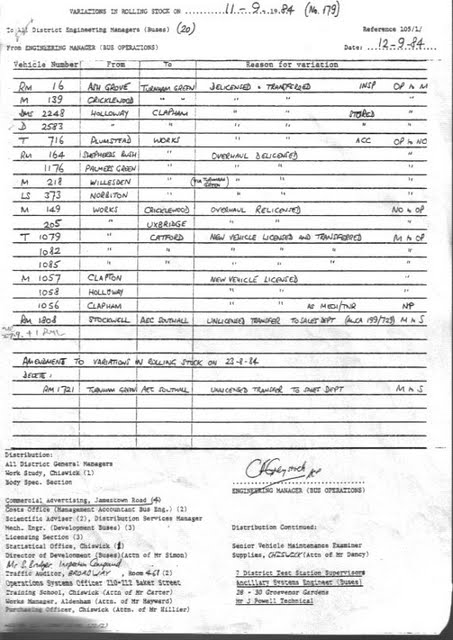 VARIATIONS IN ROLLING STOCK ON 11 - 9 .19.84 (No. 179)
To All District Engineering Managers (Buses) (20)
Reference 105/1/
From ENGINEERING MANAGER (BUS OPERATIONS)
Date: 12-9-84
Vehicle Number From To Reason for variation
RM 16 ASH GROVE TURNHAM GREEN DELICENSED & TRANSFERRED INSP OP to M
M 139 CRICKLEWOOD " " " " "
DMS 2248 HOLLOWAY CLAPHAM " " STORED "
D 2583 " " " " " "
T 716 PLUMSTEAD WORKS " " ACC OP to NO
RM 164 SHEPHERDS BUSH " OVERHAUL DELICENSED "
1176 PALMERS GREEN " " " "
M 218 WILLESDEN " (FOR TURNHAM GREEN) " " "
LS 373 NORBITON " " " "
M 149 WORKS CRICKLEWOOD OVERHAUL RELICENSED NO to OP
205 " UXBRIDGE " " "
T 1079 " CATFORD NEW VEHICLE LICENSED AND TRANSFERRED M to OP
1082 " " " " " " "
1085 " " " " " " "
M 1057 CLAPTON NEW VEHICLE LICENSED
1058 HOLLOWAY " " "
1056 CLAPHAM " " " AS MEDI/TNR NP
RM 1808 STOCKWELL AEC SOUTHALL UNLICENSED TRANSFER TO SALES DEPT M to S
AMENDMENT TO VARIATIONS IN ROLLING STOCK ON 23-8-84
DELETE:
RM 1721 TURNHAM GREEN AEC SOUTHALL UNLICENSED TRANSFER TO SALES DEPT M to S
Distribution:
All District General Managers
Work Study, Chiswick (1)
Body Spec. Section
ENGINEERING MANAGER (BUS OPERATIONS)
Commercial advertising, Jamestown Road (4)
Costs Office (Management Accountant Bus Eng.) (2)
Scientific Adviser (2), Distribution Services Manager
Mech. Engr. (Development Buses) (3)
Licensing Section (3)
Statistical Office, Chiswick
Director of Development (Buses)(Attn of Mr Simon)
Mr S. Bridger Inspection Compound
Traffic Auditor, BROADWAY, Room 461 (2)
Operations Systems Officer 110-113 Baker Street
Training School, Chiswick (Attn of Mr Carter)
Works Manager, Aldenham (Attn. of Mr Hayward)
Purchasing Officer, Chiswick (Attn. of Mr Hillier)
Distribution Continued:
Senior Vehicle Maintenance Examiner
Supplies, CHISWICK (Attn of Mr Dancy)
7 District Test Station Supervisors
Ancillary Systems Engineer (Buses)
28 - 30 Grosvenor Gardens
Mr J Powell Technical